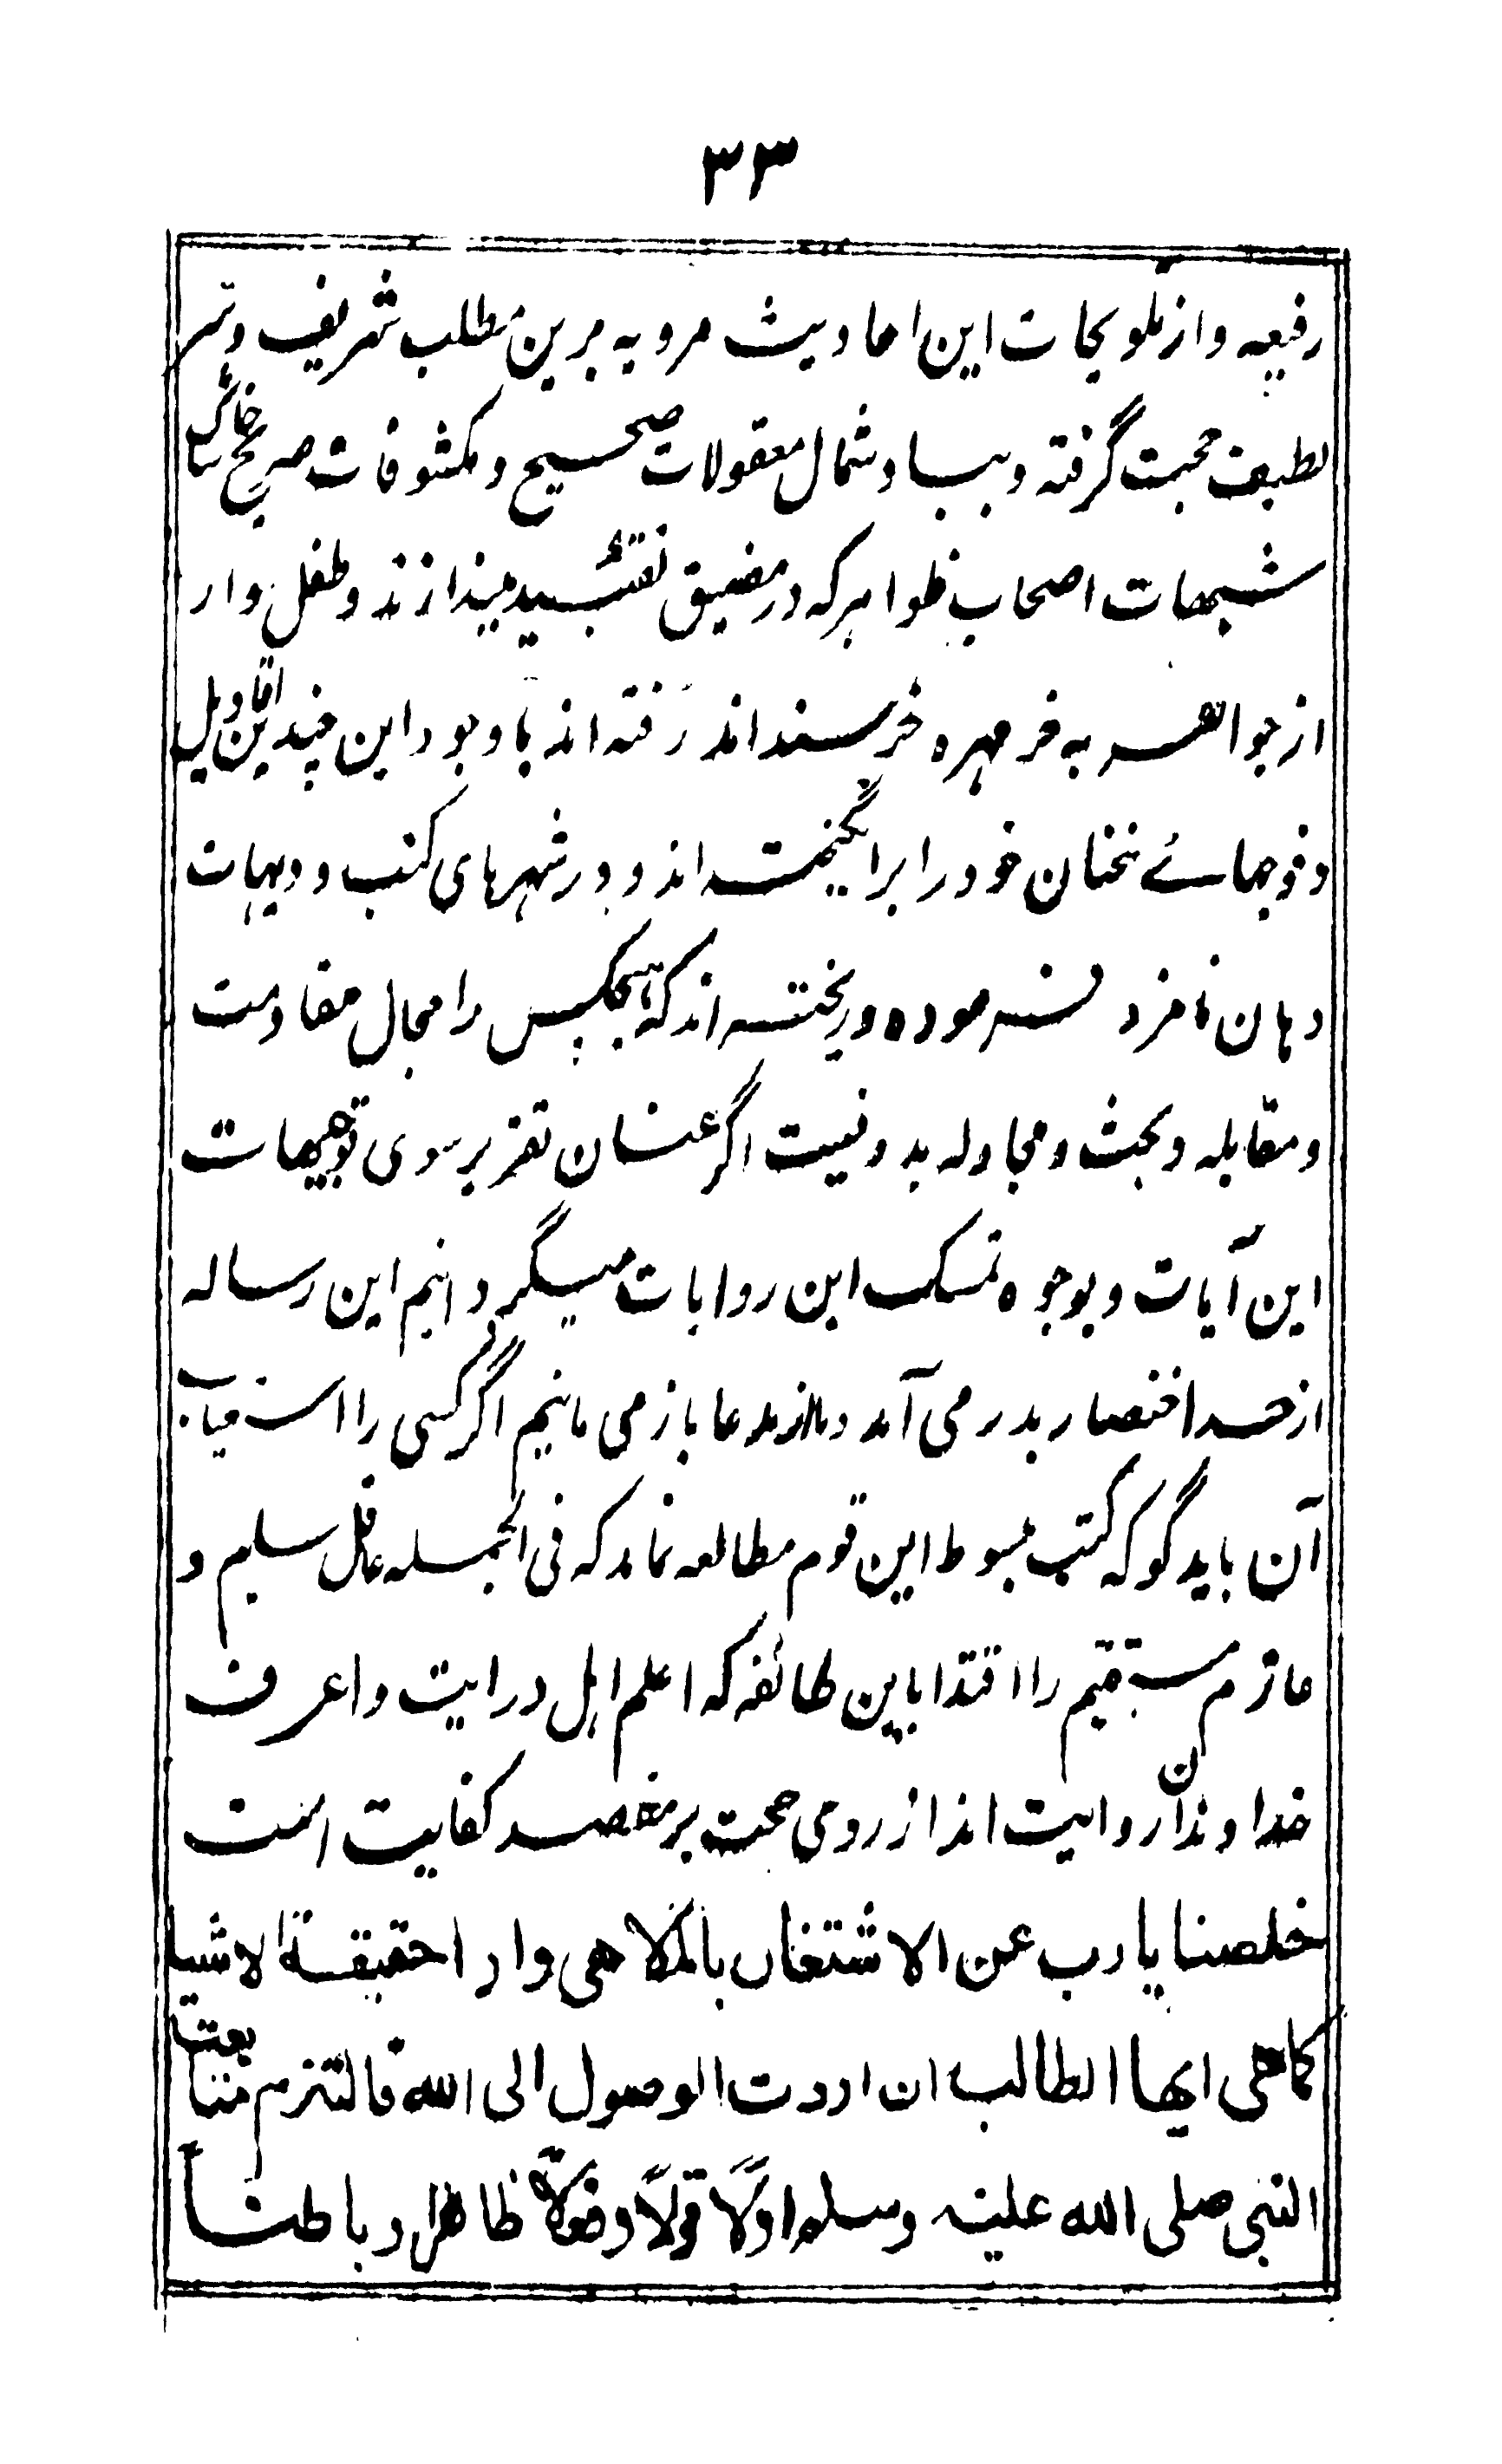 ۳۳
رفیعه و از تلویحات این احادیث مرویه برین مطلب شریف و سر
لطیف حجت گرفته و بباد شمال معقولات صحیح و مکشوفات صریح خاشاک
شبهات اصحاب ظواهر که در مضیق تقیید میندازند و طفل وار
از جواهر به خر مهره خرسند اند رفته اند باوجود این چندین اقاویل
و فوجهائے سخنان خود را برانگیخته اند و در شهرهای کتب و دیهات
دهان نامزد فرموده و ریخته اند که هیچکس را مجال مقاومت
و مقابله و بحث و مجادله بدو نیست اگر عنان تقریر سوی توجیهات
این آیات و بوجوه تمسک این روایات میگردانیم این رساله
از حد اختصار بدر می آمد و از مدعا باز می مانیم اگر کسی را استیعاب
آن باید گو که کتب مبسوط این قوم مطالعه نماید که فی الجمله عاقل سلیم و
عازم مستقیم را اقتدا باین طائفه که اعلم اهل درایت و اعرف
خداوندان روایت اند از روی صحت بر مقصد کفایت است
خلصنا یا رب عن الاشتغال بالملاهی و ارنا حقیقة الاشیا
کما هی ایها الطالب ان اردت الوصول الی الله فالتزم متابعت
النبی صلی الله علیه وسلم اوّلاً قولاً و فعلاً ظاهرا و باطناً